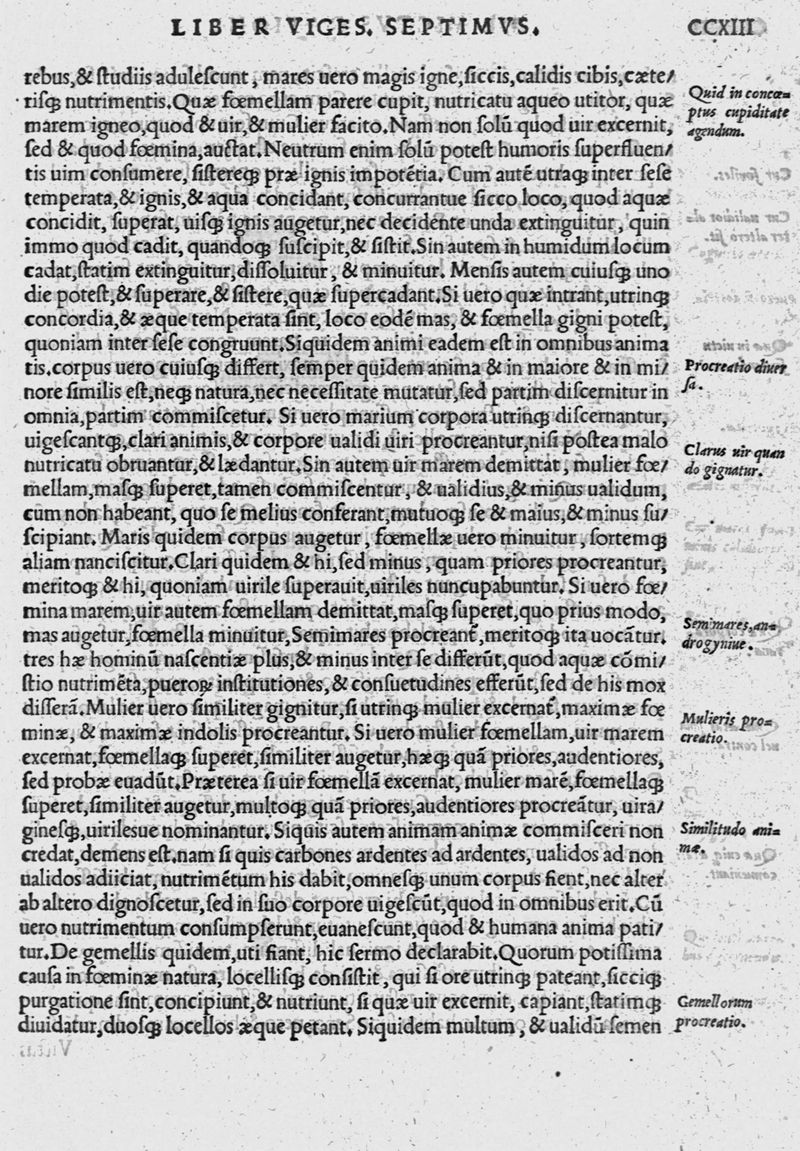 LIBER VIGES. SEPTIMVS. CCXIII
rebus,& ſtudiis aduleſcunt, mares uero magis igne,ſiccis,calidis cibis,cæte/
riſqꝫ nutrimentis.Quæ fœmellam parere cupit, nutricatu aqueo utitor, quæ
marem igneo,quod & uir,& mulier facito.Nam non ſolū quod uir excernit,
ſed & quod fœmina,auctat.Neutrum enim ſolū poteſt humoris ſuperfluen/
tis uim conſumere, ſiſtereqꝫ præ ignis impotētia. Cum autē utraqꝫ inter ſeſe
temperata,& ignis,& aqua concidant, concurrantue ſicco loco, quod aquæ
concidit, ſuperat, uiſqꝫ ignis augetur,nec decidente unda extinguitur, quin
immo quod cadit, quandoqꝫ ſuſcipit,& ſiſtit.Sin autem in humidum locum
cadat,ſtatim extinguitur,diſſoluitur, & minuitur. Menſis autem cuiuſqꝫ uno
die poteſt,& ſuperare,& ſiſtere,quæ ſupercadant.Si uero quæ intrant,utrinqꝫ
concordia,& æque temperata ſint, loco eodē mas, & fœmella gigni poteſt,
quoniam inter ſeſe congruunt.Siquidem animi eadem eſt in omnibus anima
tis.corpus uero cuiuſqꝫ differt, ſemper quidem anima & in maiore & in mi/
nore ſimilis eſt,neqꝫ natura,nec neceſſitate mutatur,ſed partim diſcernitur in
omnia,partim commiſcetur. Si uero marium corpora utrinqꝫ diſcernantur,
uigeſcantqꝫ,clari animis,& corpore ualidi uiri procreantur,niſi poſtea malo
nutricatu obruantur,& lædantur.Sin autem uir marem demittat, mulier fœ/
mellam,maſqꝫ ſuperet,tamen commiſcentur, & ualidius,& minus ualidum,
cum non habeant, quo ſe melius conferant,mutuoqꝫ ſe & maius,& minus ſu/
ſcipiant. Maris quidem corpus augetur, fœmellæ uero minuitur, ſortemqꝫ
aliam nanciſcitur.Clari quidem & hi,ſed minus, quam priores procreantur,
meritoqꝫ & hi, quoniam uirile ſuperauit,uiriles nuncupabuntur. Si uero fœ/
mina marem,uir autem fœmellam demittat,maſqꝫ ſuperet,quo prius modo,
mas augetur,fœmella minuitur,Semimares procreant̄,meritoqꝫ ita uocātur.
tres hæ hominū naſcentiæ plus,& minus inter ſe differūt,quod aquæ cōmi/
ſtio nutrimēta,pueroꝝ inſtitutiones,& conſuetudines efferūt,ſed de his mox
differā.Mulier uero ſimiliter gignitur,ſi utrinqꝫ mulier excernat̄,maximæ fœ
minæ, & maximæ indolis procreantur. Si uero mulier fœmellam,uir marem
excernat,fœmellaqꝫ ſuperet,ſimiliter augetur,hæqꝫ quā priores,audentiores,
ſed probæ euadūt.Præterea ſi uir fœmellā excernat, mulier marē,fœmellaqꝫ
ſuperet,ſimiliter augetur,multoqꝫ quā priores,audentiores procreātur, uira/
gineſqꝫ,uirilesue nominantur. Siquis autem animam animæ commiſceri non
credat,demens eſt.nam ſi quis carbones ardentes ad ardentes, ualidos ad non
ualidos adiiciat, nutrimētum his dabit,omneſqꝫ unum corpus fient,nec alter
ab altero dignoſcetur,ſed in ſuo corpore uigeſcūt,quod in omnibus erit.Cū
uero nutrimentum conſumpſerunt,euaneſcunt,quod & humana anima pati/
tur.De gemellis quidem,uti fiant, hic ſermo declarabit.Quorum potiſſima
cauſa in fœminæ natura, locelliſqꝫ conſiſtit, qui ſi ore utrinqꝫ pateant,ſicciqꝫ
purgatione ſint,concipiunt,& nutriunt, ſi quæ uir excernit, capiant,ſtatimqꝫ
diuidatur,duoſqꝫ locellos æque petant. Siquidem multum, & ualidū ſemen
Quid in concœ=
ptus cupiditate
agendum.
Procreatio diuer
ſa.
Clarus uir quan
do gignatur.
Semimares,an=
drogyniue.
Mulieris pro=
creatio.
Similitudo ani=
mæ.
Gemellorum
procreatio.